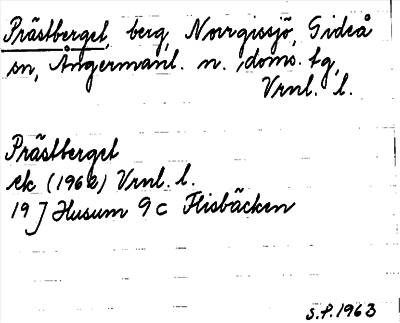 Prästberget, berg, Norrgissjö, Gideå
sn, Ångermanl. n. doms. tg,
Vrnl. l.
Prästberget
ek (1962) Vrnl. l.
19 J Husum 9 c Flisbäcken
S.P. 1963